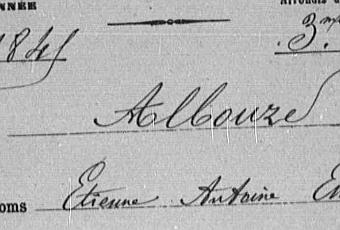 NNÉE
1845
3me
Albouze
oms Etienne Antoine